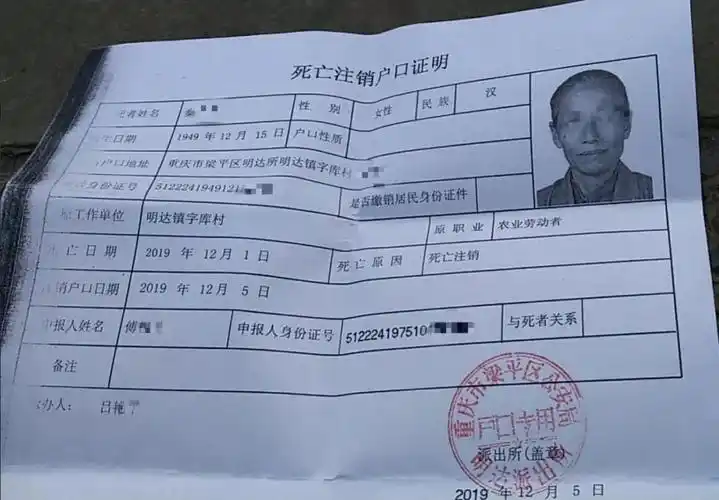 死亡注销户口证明
死者姓名 秦 性 别 女性 民族 汉
生日期 1949 年 12 月 15 日 户口性质
户口地址 重庆市梁平区明达所明达镇字库村
身份证号 5122241949121 是否缴销居民身份证件
工作单位 明达镇字库村 原 职 业 农业劳动者
亡 日 期 2019 年 12 月 1 日 死 亡 原 因 死亡注销
销户口日期 2019 年 12 月 5 日
申报人姓名 傅 申报人身份证号 512224197510 与死者关系
备注
办人: 吕艳
重庆市梁平区公安局
户口专用
明达派出所
派出所(盖章)
2019 年 12 月 5 日